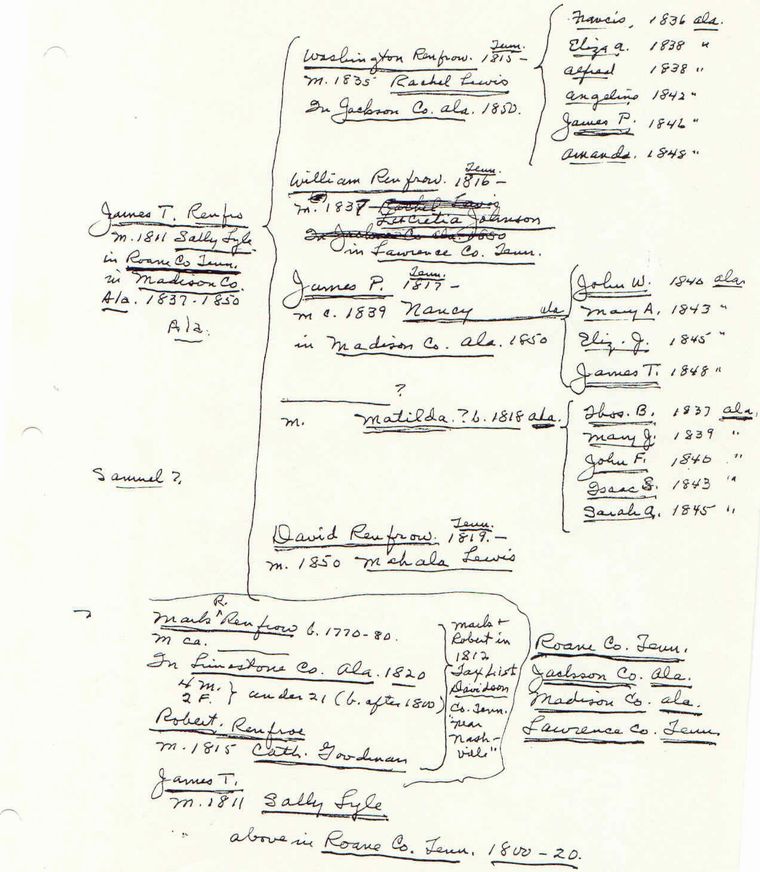 James T. Renfro
m. 1811 Sally Lyle
in Roane Co Tenn.
in Madison Co.
Ala. 1837-1850
Ala.
Samuel?
Tenn.
Washington Renfrow. 1815-
m. 1835 Rachel Lewis
In Jackson Co. Ala. 1850.
Francis, 1836 ala.
Eliza a. 1838 "
alfred 1838 "
angeline 1842 "
James P. 1846 "
amanda. 1848 "
Tenn.
William Renfrow. 1816-
m. 1837
Lucretia Johnson
In Jackson Co. ala. 1850
in Lawrence Co. Tenn.
Tenn.
James P. 1817-
m c. 1839 Nancy ala
in Madison Co. ala. 1850
John W. 1840 ala
Mary A. 1843 "
Eliz. J. 1845 "
James T. 1848 "
?
m. Matilda.? b. 1818 ala.
Thos. B. 1837 ala.
Mary J. 1839 "
John F. 1840 "
Isaac S. 1843 "
Sarah a. 1845 "
Tenn.
David Renfrow. 1819.-
m. 1850 Mahala Lewis
R.
Mark ^ Renfrow b. 1770-80.
m ca.
In Limestone Co. Ala. 1820
4 M.
2 F. } under 21 (b. after 1800)
Robert Renfroe
m. 1815 Cath. Goodman
James T.
m. 1811 Sally Lyle
" above in Roane Co. Tenn. 1800-20.
Mark +
Robert in
1812
Tax List
Davidson
Co. Tenn.
"near
Nash-
ville"
Roane Co. Tenn.
Jackson Co. Ala.
Madison Co. ala.
Lawrence Co. Tenn.